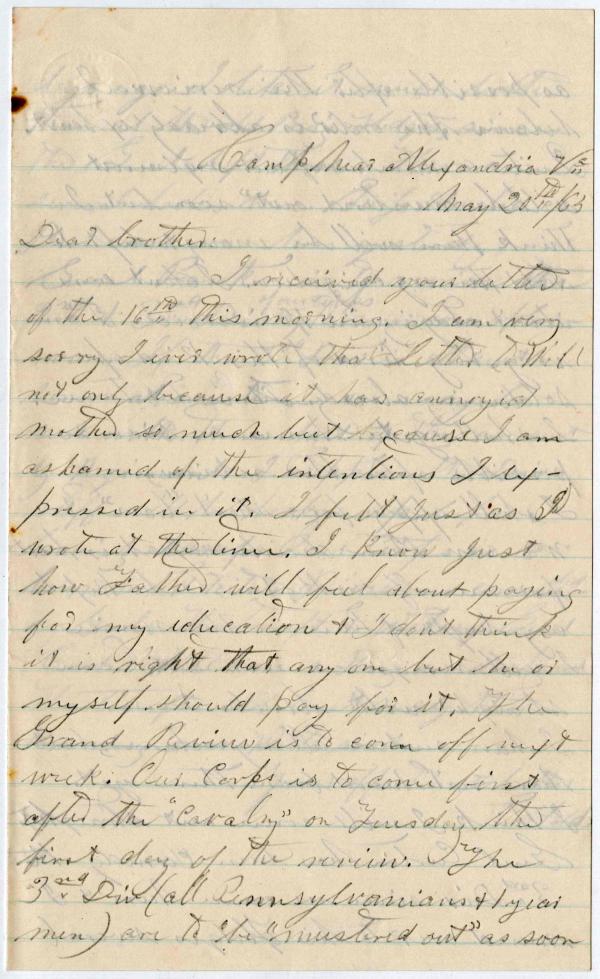 Camp near Alexandria Va
May 20th /65
Dear brother:
I received your letter
of the 16th this morning. I am very
sorry I ever wrote that letter to Will
not only because it has annoyed
mother so much but because I am
ashamed of the intentions I ex-
pressed in it. I felt just as I
wrote at the time. I know just
how Father will feel about paying
for my education & I don't think
it is right that any one but he or
myself should pay for it. The
Grand Review is to come off next
week. Our Corps is to come first
after the "Cavalry" on Tuesday the
first day of the review. The
3rd Div (all Pennsylvanians & 1 year
men) are to be "mustered out" as soon